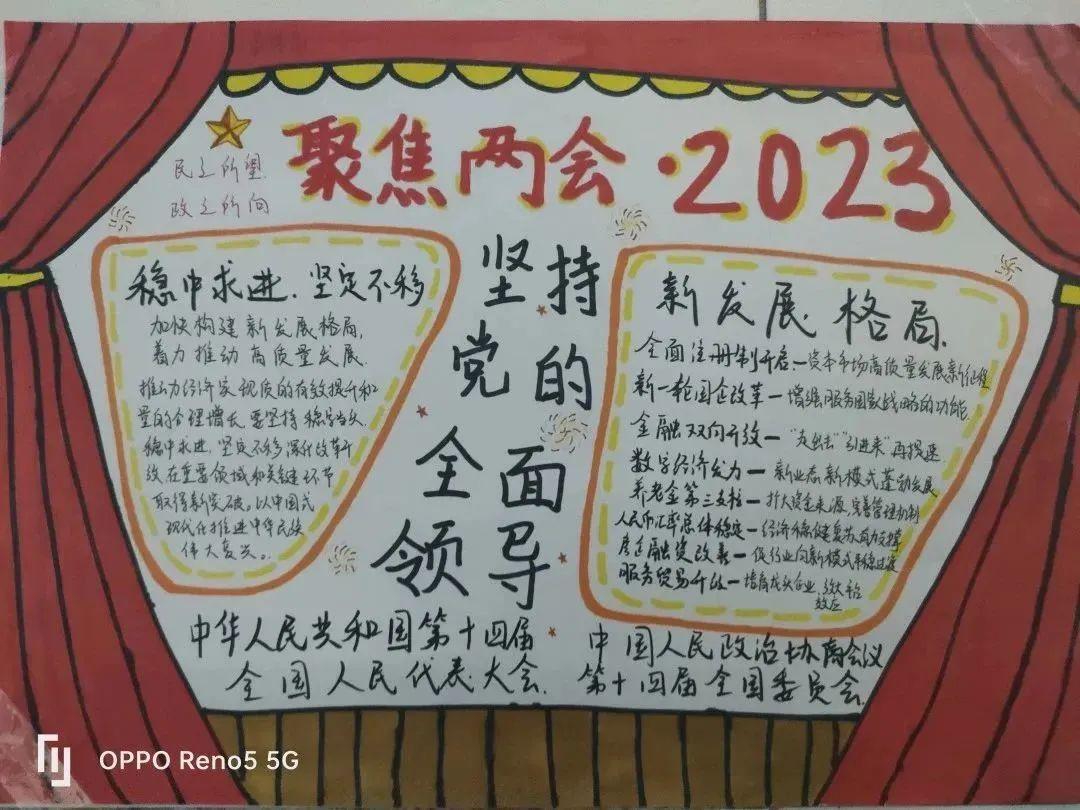 聚焦两会·2023
民之所望
政之所向
稳中求进、坚定不移
加快构建新发展格局,
着力推动高质量发展.
推动经济实现质的有效提升和
量的合理增长要坚持稳字当头
稳中求进.坚定不移深化改革开
放,在重要领域和关键环节
取得新突破。以中国式
现代化推进中华民族
伟大复兴。
坚持
党的
全面
领导
新发展格局.
全面注册制开启—资本市场高质量发展新征程
新一轮国企改革—增强服务国家战略的功能.
金融双向开放—“走出去”“引进来”再提速
数字经济发力—新业态新模式蓬勃发展
养老金第三支柱—扩大资金来源,完善管理机制
人民币汇率总体稳定—经济稳健复苏,有力支撑
房企融资改善—促行业向新模式平稳过渡
服务贸易开放—培育龙头企业,
效应
中华人民共和国第十四届
全国人民代表大会.
中国人民政治协商会议
第十四届全国委员会.
OPPO Reno5 5G